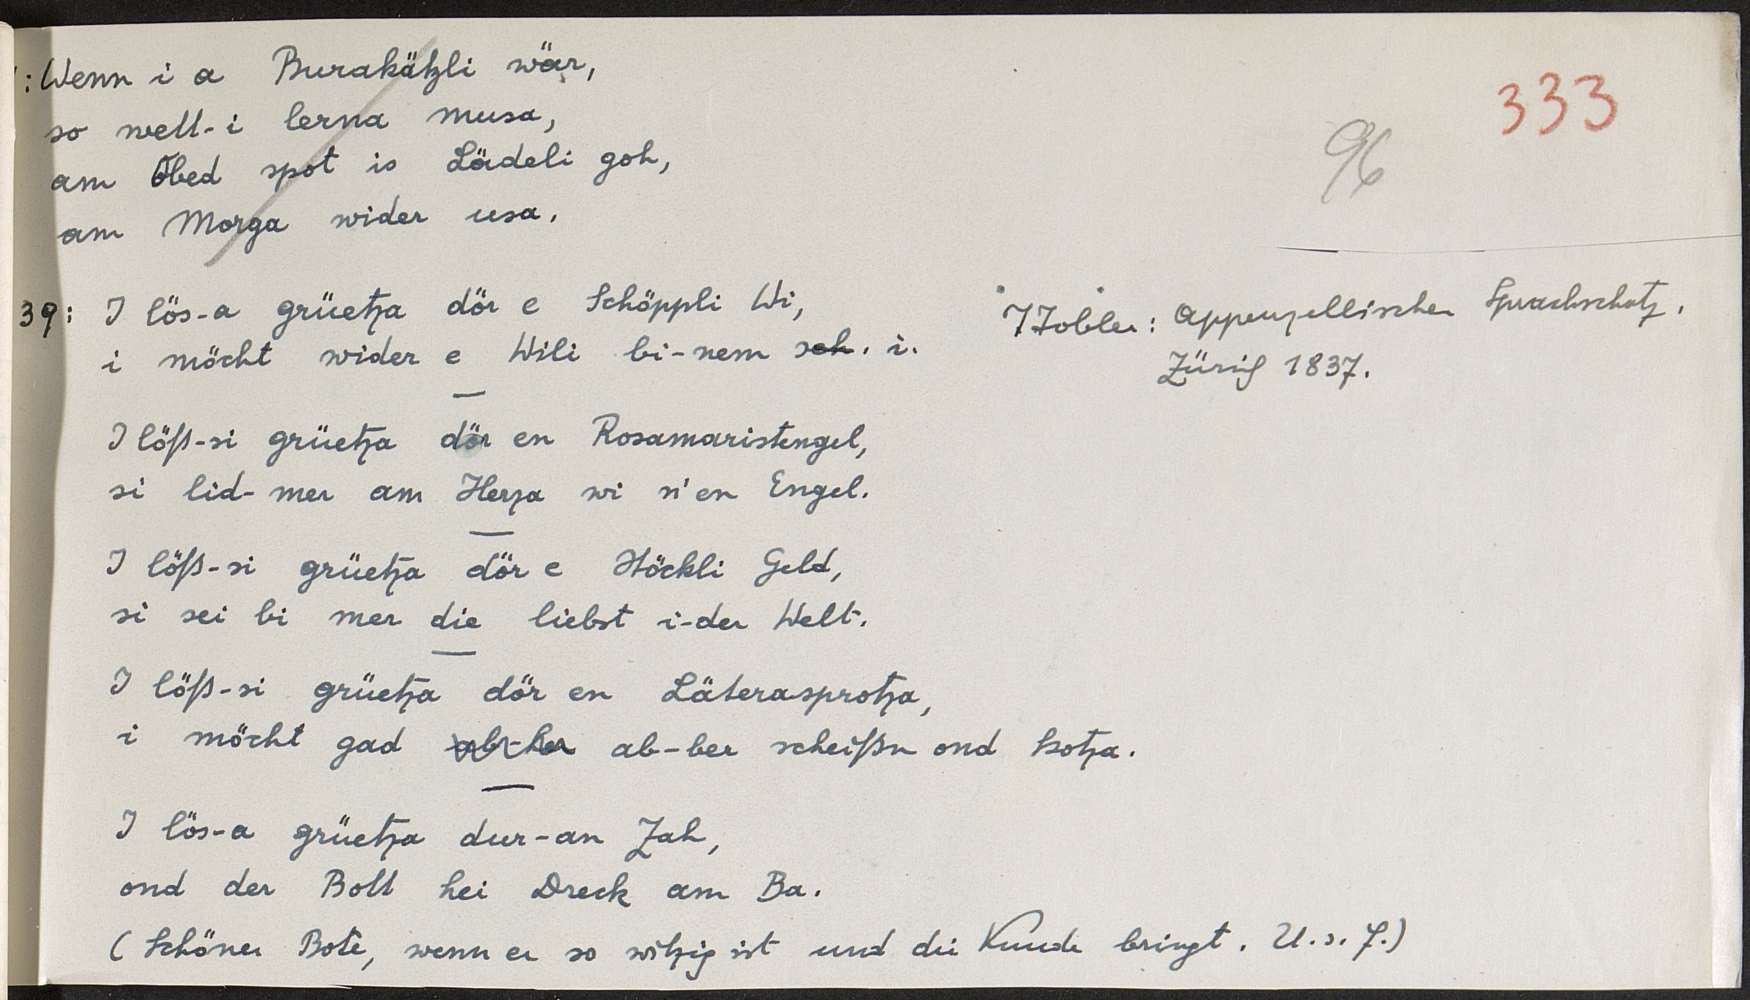 : Wenn i a Burakätzli wär,
so well-i lerna musa,
am Obed spot is Lädeli goh,
am Morga wider usa.
333
96
39: I lös-a grüetza dör e Schöppli Wi,
i möcht wider e Wili bi-nem sch. i.
I löß-si grüetza dör en Rosamaristengel,
si lid-mer am Herza wi n'en Engel.
I löß-si grüetza dör e Stöckli Geld,
si sei bi mer die liebst i-der Welt.
I löß-si grüetza dör en Läterasprotza,
i möcht gad ab-her ab-ber scheißn ond kotza.
I lös-a grüetza dur-an Zah,
ond der Bott hei Dreck am Ba.
(Schöner Bote, wenn er so witzig ist und die Kunde bringt. U.s.f.)
T Tobler: Appenzellischer Sprachschatz.
Zürich 1837.